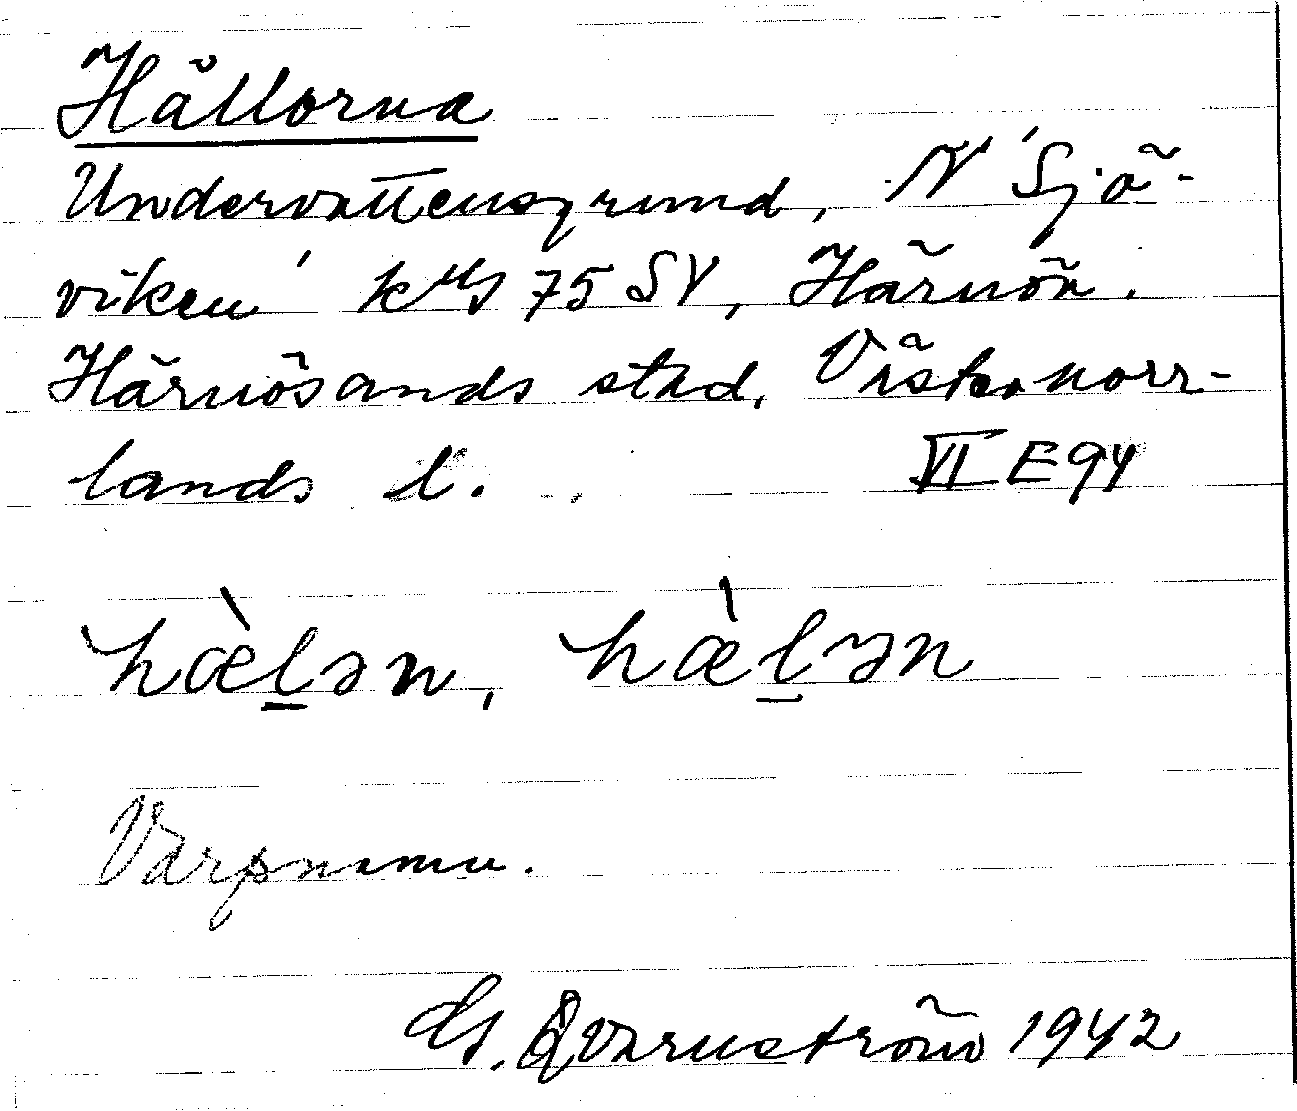 Hällorna
Undervattensgrund, N 'Sjö-
viken' kbl 75 SV, Härnön.
Härnösands stad, Västernorr-
lands l. VI E 94
hæ̀l̲ən, hæ̀l̲ɜn
Varpnamn.
G. Qvarnström 1942